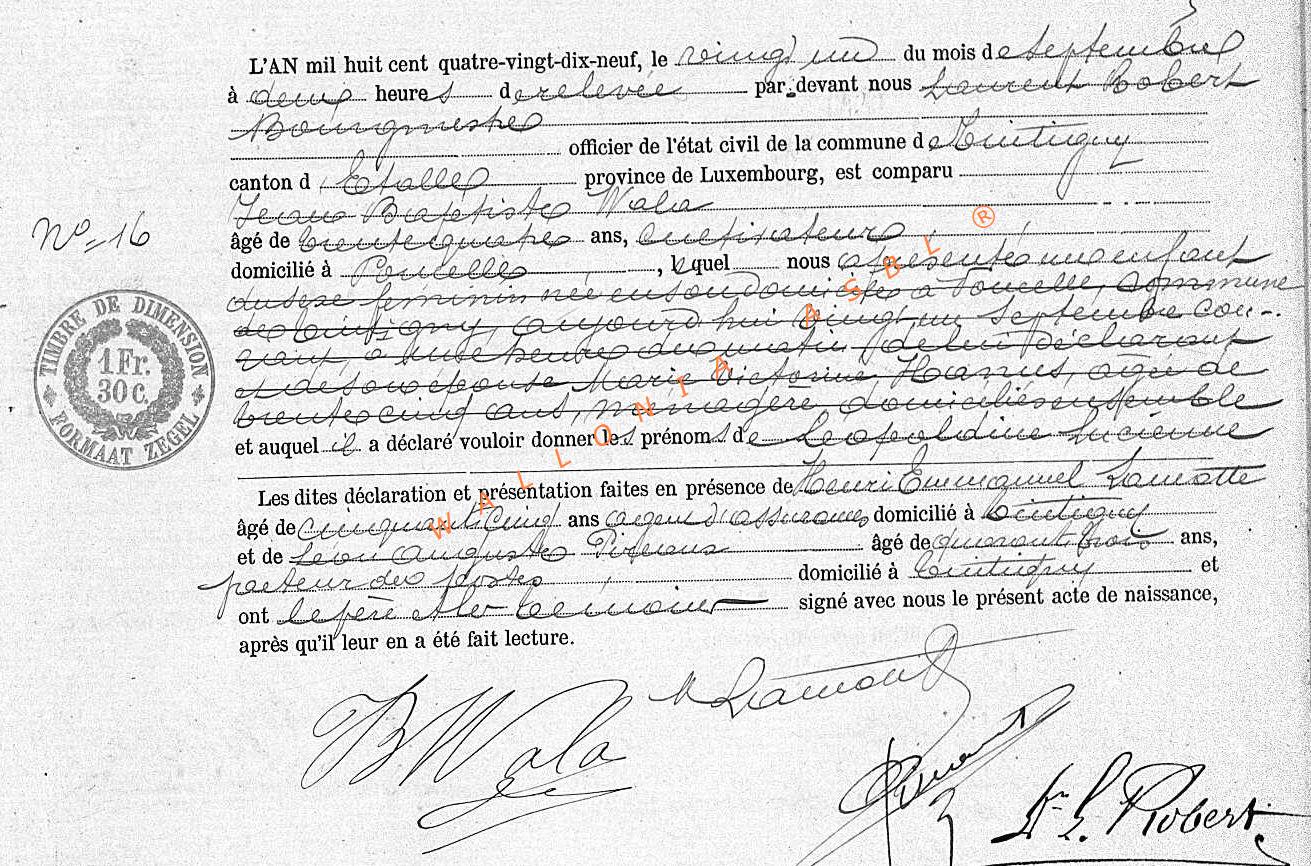 L'AN mil huit cent quatre-vingt-dix-neuf, le vingt un du mois de septembre
à deux heures de relevée par devant nous Laurent Robert
Bourgmestre
officier de l'état civil de la commune de Tintigny
canton d'Etalle province de Luxembourg, est comparu
Jean Baptiste Wala
N°. 16
âgé de trente quatre ans, cultivateur
domicilié à Poncelle, lequel nous a présenté un enfant
du sexe féminin née en son domicile à Poncelle, commune
de Tintigny, aujourd'hui vingt un septembre cou-
rant, à heure du matin de lui déclarant
et de son épouse Marie Victorine Hanus, âgée de
trente cinq ans, ménagère domiciliés ensemble
et auquel il a déclaré vouloir donner les prénoms de Léopoldine Lucienne
Les dites déclaration et présentation faites en présence de Henri Emmanuel Lamotte
âgé de cinquante cinq ans agent d'assurances domicilié à Tintigny
et de Léon Auguste âgé de quarante trois ans,
facteur des postes domicilié à Tintigny et
ont le père et les témoins signé avec nous le présent acte de naissance,
après qu'il leur en a été fait lecture.
TIMBRE DE DIMENSION
1 Fr.
30 c.
FORMAAT ZEGEL
WALLONIA ASBL ®
JB Wala
Dr L. Robert.